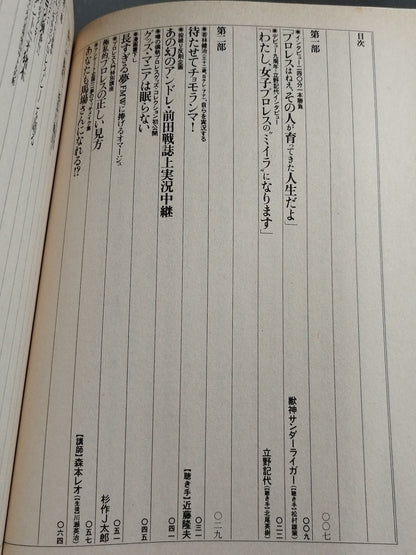 目次
第一部
〇〇七
●インタビュー二四〇分一本勝負
「プロレスはねぇ、その人が育ってきた人生だよ」
獣神サンダーライガー（聴き手）松村雄策
〇〇九
●デビュー九周年・立野記代インタビュー
「わたし、女子プロレスの“ミイラ”になります」
立野記代（聴き手）北尾英樹
第二部
〇二九
●若林健治（三十三歳、日テレ・アナ）、自らを実況する
待たせてチョモランマ！
【聴き手】近藤隆夫
〇三一
あの幻のアンドレ・前田戦誌上実況中継
グッズ・マニアは眠らない
〇四五
長すぎる夢、FMWに捧げるオマージュ
杉作J太郎
〇五一
プロレスの正しい見方
【講師】森本レオ（生徒）川瀬英治
〇五七
あなたも馬場さんになれる!?
〇六四